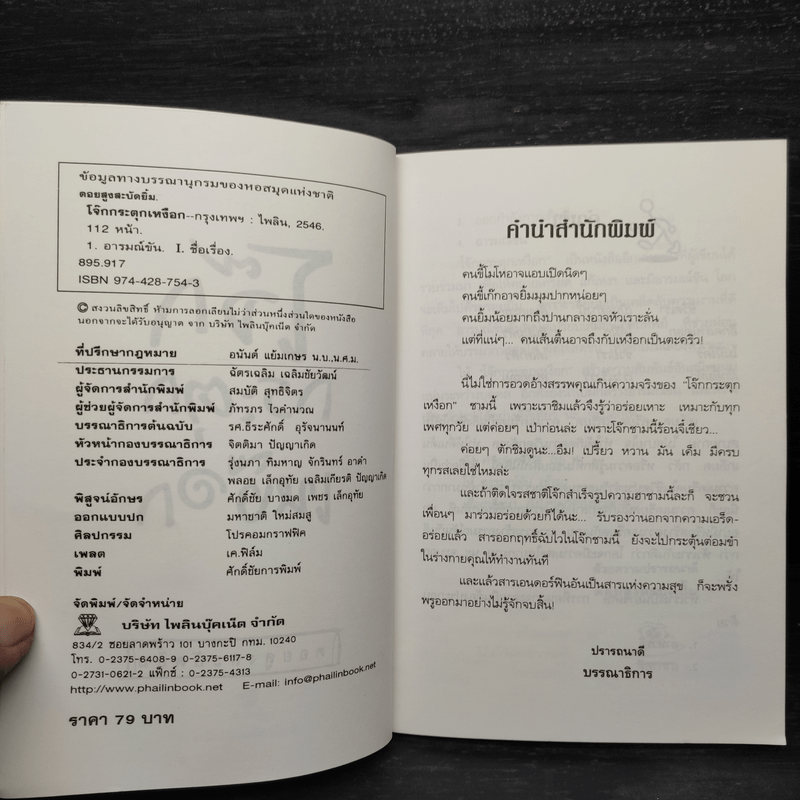 ข้อมูลทางบรรณานุกรมของหอสมุดแห่งชาติ
ดอยสูงสะบัดยิ้ม.
โจ๊กกระตุกเหงือก--กรุงเทพฯ : ไพลิน, 2546.
112 หน้า.
1. อารมณ์ขัน. I. ชื่อเรื่อง.
895.917
ISBN 974-428-754-3
© สงวนลิขสิทธิ์ ห้ามการลอกเลียนไม่ว่าส่วนหนึ่งส่วนใดของหนังสือ
นอกจากจะได้รับอนุญาต จาก บริษัท ไพลินบุ๊คเน็ต จำกัด
ที่ปรึกษากฎหมาย อนันต์ แย้มเกษร น.บ.,น.ศ.ม.
ประธานกรรมการ ฉัตรเฉลิม เฉลิมชัยวัฒน์
ผู้จัดการสำนักพิมพ์ สมบัติ สุทธิจิตร
ผู้ช่วยผู้จัดการสำนักพิมพ์ ภัทรภร ไวคำนวณ
บรรณาธิการต้นฉบับ รศ.ธีระศักดิ์ อุรัจนานนท์
หัวหน้ากองบรรณาธิการ จิตติมา ปัญญาเกิด
ประจำกองบรรณาธิการ รุ่งนภา ทิมหาญ จักรินทร์ อาดำ
พลอย เล็กอุทัย เฉลิมเกียรติ ปัญญาเกิด
พิสูจน์อักษร ศักดิ์ชัย บางมด เพชร เล็กอุทัย
ออกแบบปก มหาชาติ ใหม่สมสู
ศิลปกรรม โปรคอมกราฟฟิค
เพลต เค.ฟิล์ม
พิมพ์ ศักดิ์ชัยการพิมพ์
จัดพิมพ์/จัดจำหน่าย
บริษัท ไพลินบุ๊คเน็ต จำกัด
834/2 ซอยลาดพร้าว 101 บางกะปิ กทม. 10240
โทร. 0-2375-6408-9 0-2375-6117-8
0-2731-0621-2 แฟ็กซ์ : 0-2375-4313
http://www.phailinbook.net E-mail: info@phailinbook.net
ราคา 79 บาท
คำนำสำนักพิมพ์
คนขี้โมโหอาจแอบเปิดนิดๆ
คนขี้เก๊กอาจยิ้มมุมปากหน่อยๆ
คนยิ้มน้อยมากถึงปานกลางอาจหัวเราะลั่น
แต่ที่แน่ๆ... คนเส้นตื้นอาจถึงกับเหงือกเป็นตะคริว!
นี่ไม่ใช่การอวดอ้างสรรพคุณเกินความจริงของ "โจ๊กกระตุก
เหงือก" ชามนี้ เพราะเราชิมแล้วจึงรู้ว่าอร่อยเหาะ เหมาะกับทุก
เพศทุกวัย แต่ค่อยๆ เป่าก่อนล่ะ เพราะโจ๊กชามนี้ร้อนจี๋เชียว...
ค่อยๆ ตักชิมดูนะ...อืม! เปรี้ยว หวาน มัน เค็ม มีครบ
ทุกรสเลยใช่ไหมล่ะ
และถ้าติดใจรสชาติโจ๊กสำเร็จรูปความฮาชามนี้ละก็ จะชวน
เพื่อนๆ มาร่วมอร่อยด้วยก็ได้นะ... รับรองว่านอกจากความเอร็ด-
อร่อยแล้ว สารออกฤทธิ์ฉับไวในโจ๊กชามนี้ ยังจะไปกระตุ้นต่อมขำ
ในร่างกายคุณให้ทำงานทันที
และแล้วสารเอนดอร์ฟินอันเป็นสารแห่งความสุข ก็จะพรั่ง
พรูออกมาอย่างไม่รู้จักจบสิ้น!
ปรารถนาดี
บรรณาธิการ